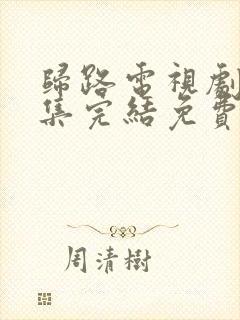 歸路電視劇
集完結免費
周清樹